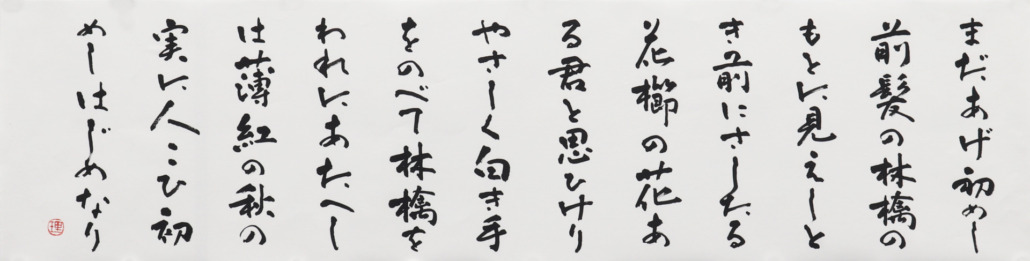 まだあげ初めし
前髪の林檎の
もとに見えしと
き前にさしたる
花櫛の花あ
る君と思ひけり
やさしく白き手
をのべて林檎を
われにあたへし
は薄紅の秋の
実に人こひ初
めしはじめなり
理